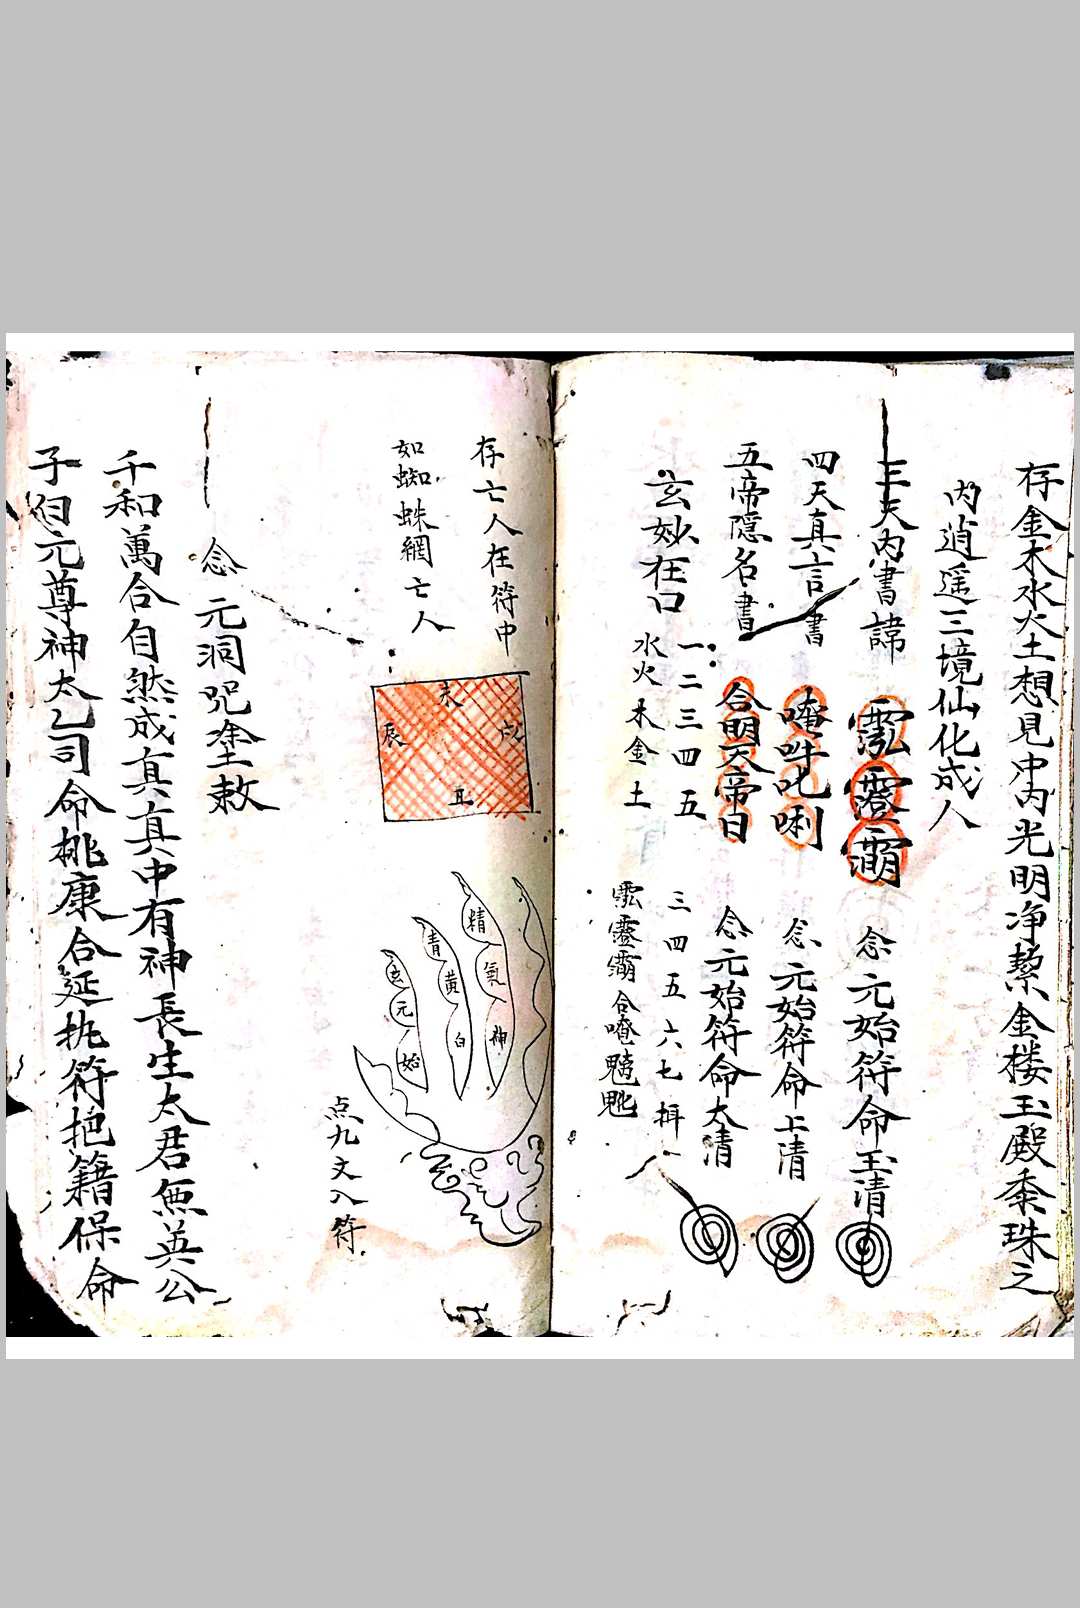 存金木水火土想見中內光明净潔金楼玉殿黍珠之
內逍遥三境仙化成人
三天內書諱 念元始符命玉清
四天真言書 唵吽吒唎 念元始符命上清
五帝隱名書 合明天帝日 念元始符命太清
玄妙在口
一二三四五 三四五六七
水火木金土
存亡人在符中
如蜘蛛網亡人
未
辰 戌
丑
精氣神
青黄白
玄元始
点九文入符
念元洞咒塗敕
千和萬合自然成真真中有神長生太君無英公
子曰元尊神太乙司命桃康合延执符把籍保命